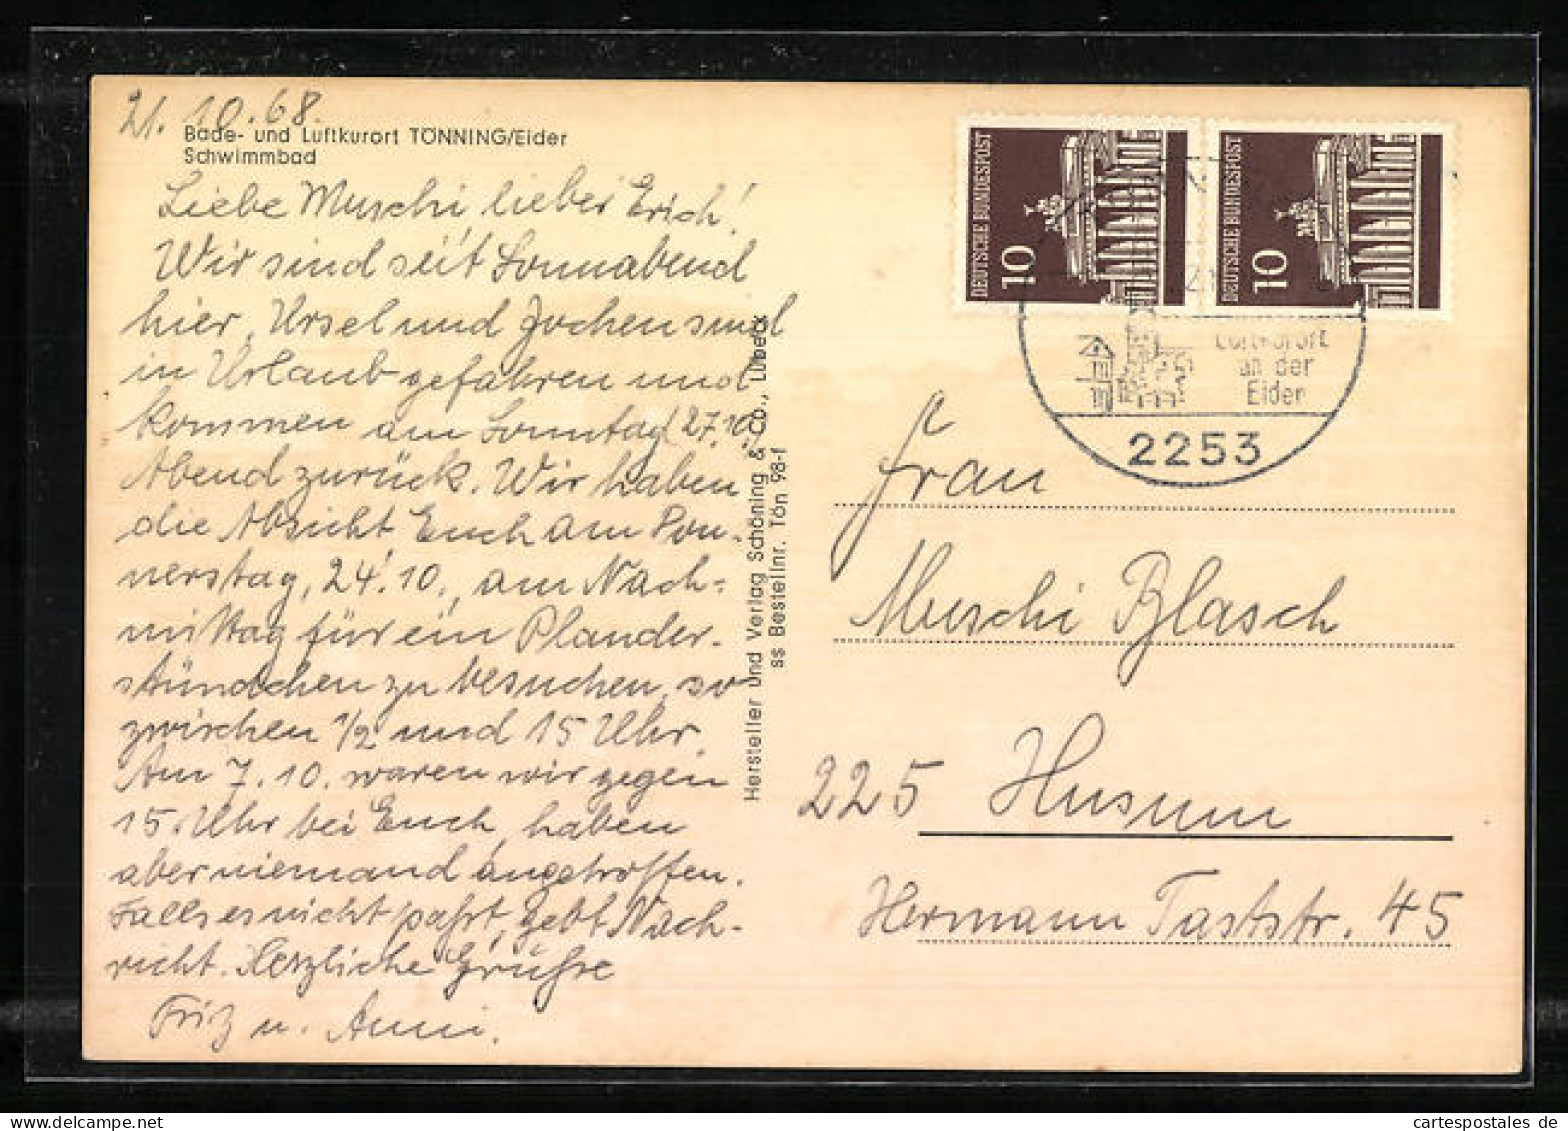 21.10.68.
Bade- und Luftkurort TÖNNING/Eider
Schwimmbad
Liebe Muschi, lieber Erich!
Wir sind seit Sonnabend
hier, Ursel und Jochen sind
in Urlaub gefahren und
kommen am Sonntag (27.10.)
Abend zurück. Wir haben
die Absicht Euch am Don-
nerstag, 24.10., am Nach-
mittag für ein Plauder-
stündchen zu besuchen, so
zwischen 1/2 und 15 Uhr.
Am 7.10. waren wir gegen
15. Uhr bei Euch, haben
aber niemand angetroffen.
Falls es nicht paßt, gebt Nach-
richt. Herzliche Grüße
Friz u. Anni.
Hersteller und Verlag Schöning & Co., Lübeck
ss Bestellnr. Tön 98-f
DEUTSCHE BUNDESPOST
10
DEUTSCHE BUNDESPOST
10
Luftkurort
an der
Eider
2253
Frau
Muschi Blasch
225 Husum
Hermann Taststr. 45
www.cartespostales.de